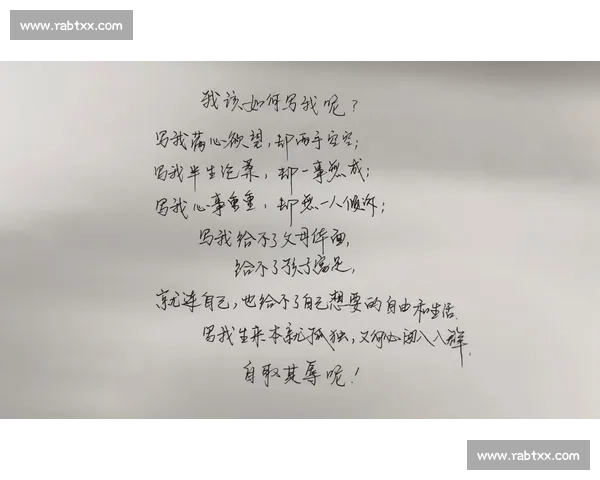 www.rabtxx.com
我该如何写我呢？
写我满心欲望，却两手空空；
写我半生沧桑，却一事无成；
写我心事重重，却无一人倾诉；
写我给不了父母体面，
给不了孩子富足，
就连自己，也给不了自己想要的自由和生活.
写我生来本就孤独，又何必闯入人群，
自取其辱呢！
www.rabtxx.com